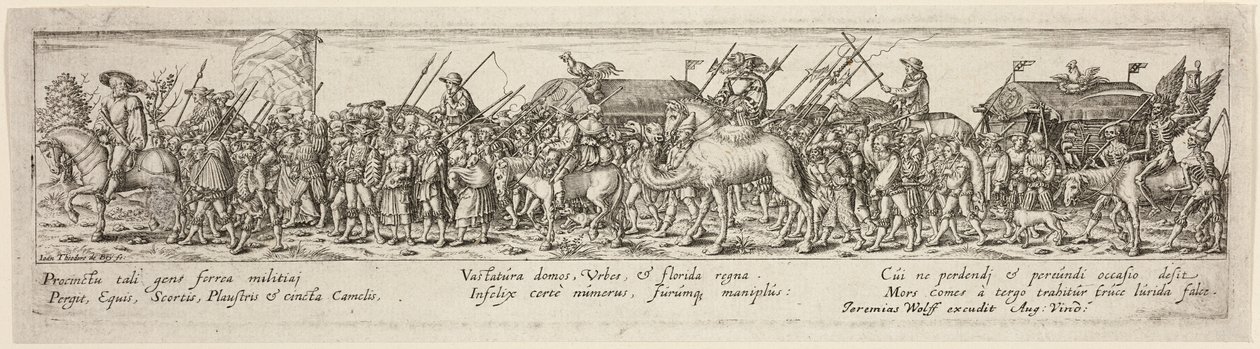 Ioan Theodore de Bry fe:
Procinctu tali gens ferrea militiaj
Pergit, Equis, Scortis, Plaustris & cincta Camelis,
Vastatura domos, Vrbes, & florida regna.
Infelix certè nùmerus, Fùrùmq; maniplùs:
Cúi ne perdendj & pereùndi occasio desit
Mors comes à tergo trahitùr trùce lùrida falce.
Jeremias Wolff excudit Aug: Vind: